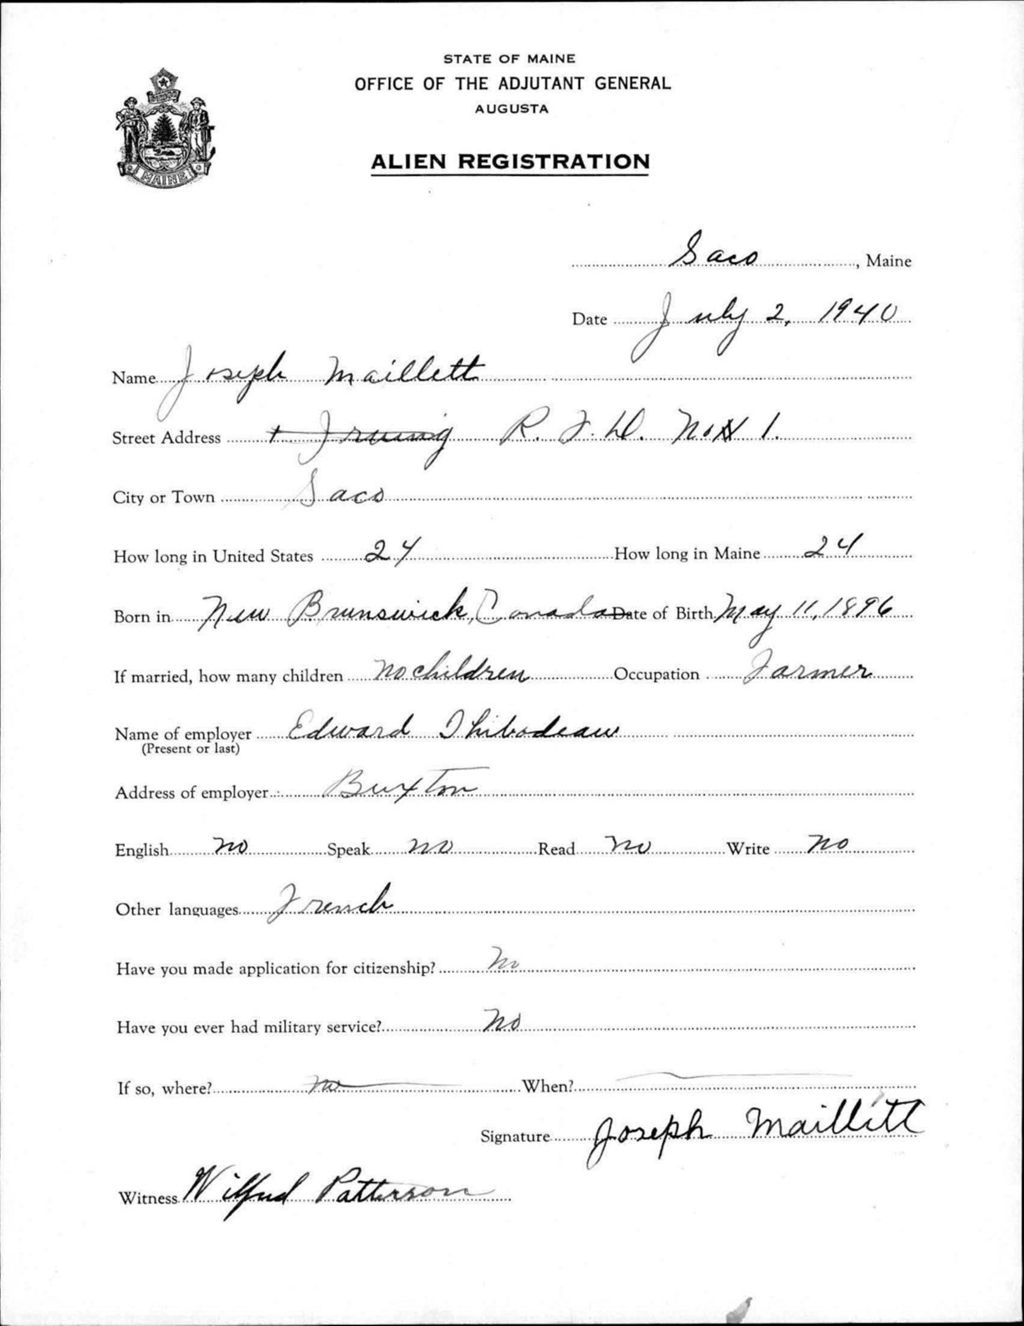 STATE OF MAINE
OFFICE OF THE ADJUTANT GENERAL
AUGUSTA
MAINE
ALIEN REGISTRATION
Saco, Maine
Date July 2, 1940
Name Joseph Maillett
Street Address R.F.D. No 1.
City or Town Saco
How long in United States 24 How long in Maine 24
Born in New Brunswick, Canada Date of Birth May 11, 1896
If married, how many children no children Occupation Farmer
Name of employer Edward Thibodeau
(Present or last)
Address of employer Buxton
English no Speak no Read no Write no
Other languages French
Have you made application for citizenship? No
Have you ever had military service? No
If so, where? no When?
Signature Joseph Maillett
Witness Wilfred Patterson